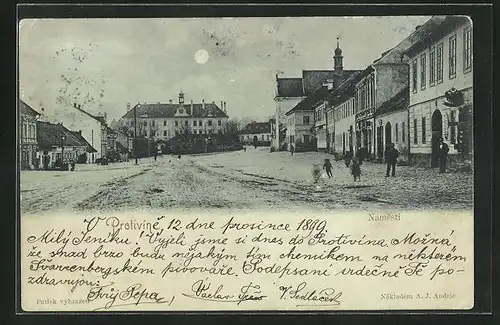 V Protivíně, 12 dne prosince 1899
Náměstí
Milý Jeníku! Vyjeli jsme si dnes do Protivína. Možná,
že snad brzo budu nějakým tím chemikem na některém
Švarcenbergském pivováře. Podepsaní srdečně Tě po-
zdravujou: Tvůj Pepa, Václav V. Sedláček
Patisk vyhrazen
Nákladem A. J.